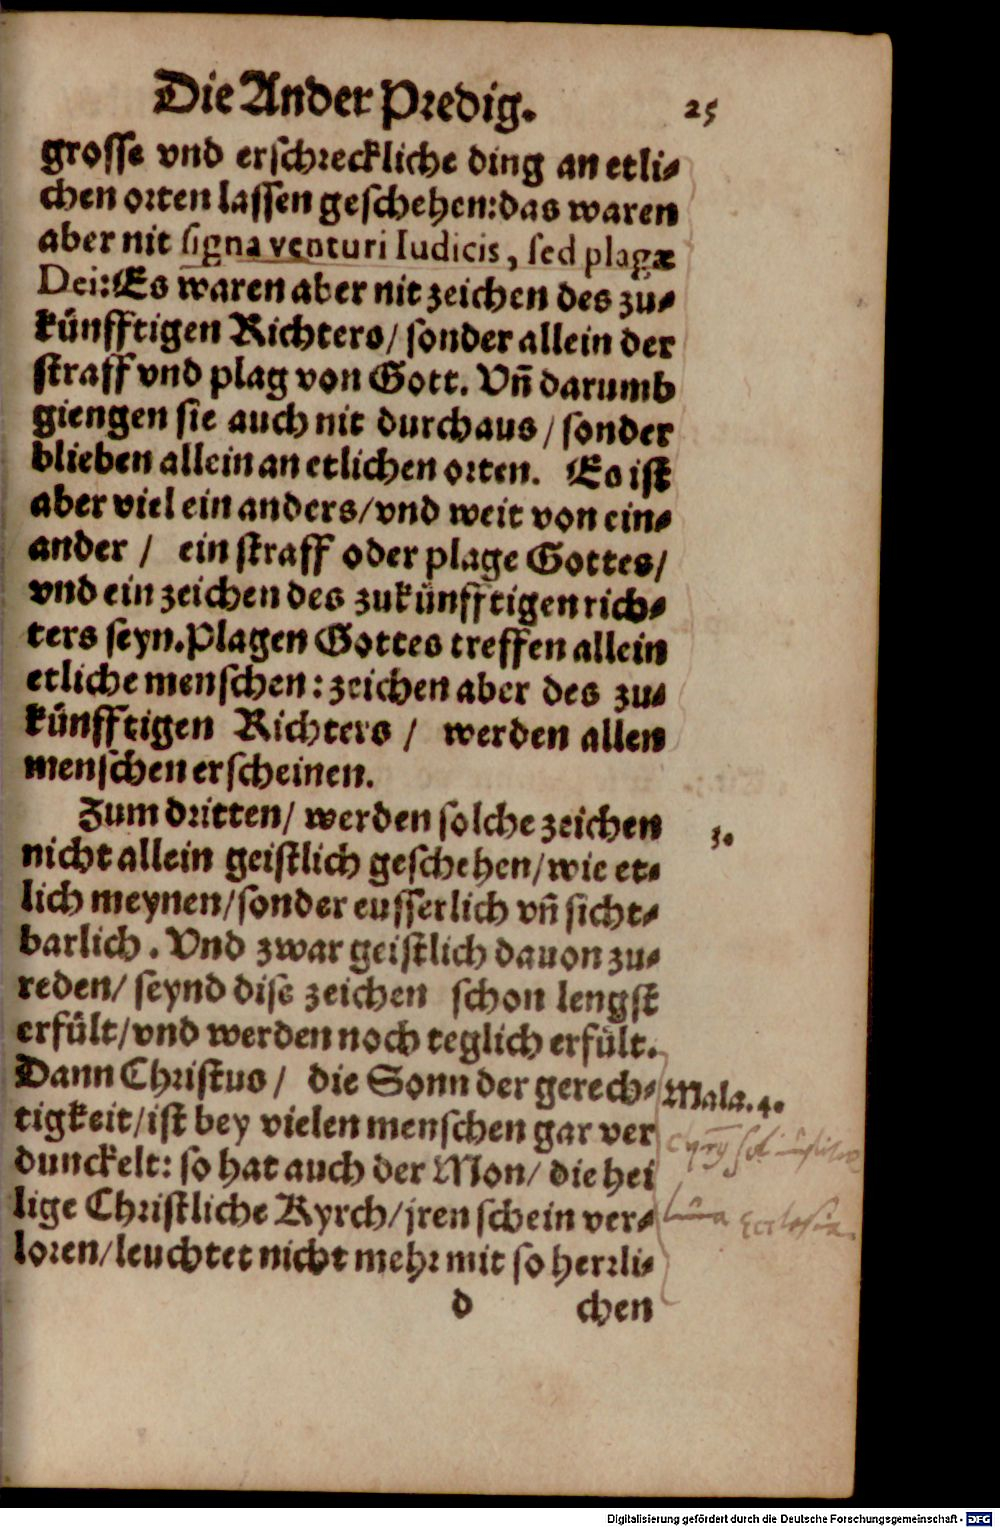 Die Ander Predig. 25
grosse vnd erschreckliche ding an etli-
chen orten lassen geschehen: das waren
aber nit signa venturi Iudicis, sed plagæ
Dei: Es waren aber nit zeichen des zu-
künfftigen Richters/ sonder allein der
straff vnd plag von Gott. Vñ darumb
giengen sie auch nit durchaus/ sonder
blieben allein an etlichen orten. Es ist
aber viel ein anders/ vnd weit von ein-
ander/ ein straff oder plage Gottes/
vnd ein zeichen des zukünfftigen rich-
ters seyn. Plagen Gottes treffen allein
etliche menschen: zeichen aber des zu-
künfftigen Richters/ werden allen
menschen erscheinen.
Zum dritten/ werden solche zeichen 3.
nicht allein geistlich geschehen/ wie et-
lich meynen/ sonder eusserlich vñ sicht-
barlich. Vnd zwar geistlich dauon zu-
reden/ seynd dise zeichen schon lengst
erfült/ vnd werden noch teglich erfült.
Dann Christus/ die Sonn der gerech- Mala. 4.
tigkeit/ ist bey vielen menschen gar ver
dunckelt: so hat auch der Mon/ die hei
lige Christliche Kyrch/ jren schein ver- luna Ecclesia.
loren/ leuchtet nicht mehr mit so herrli-
d chen
Digitalisierung gefördert durch die Deutsche Forschungsgemeinschaft - DFG